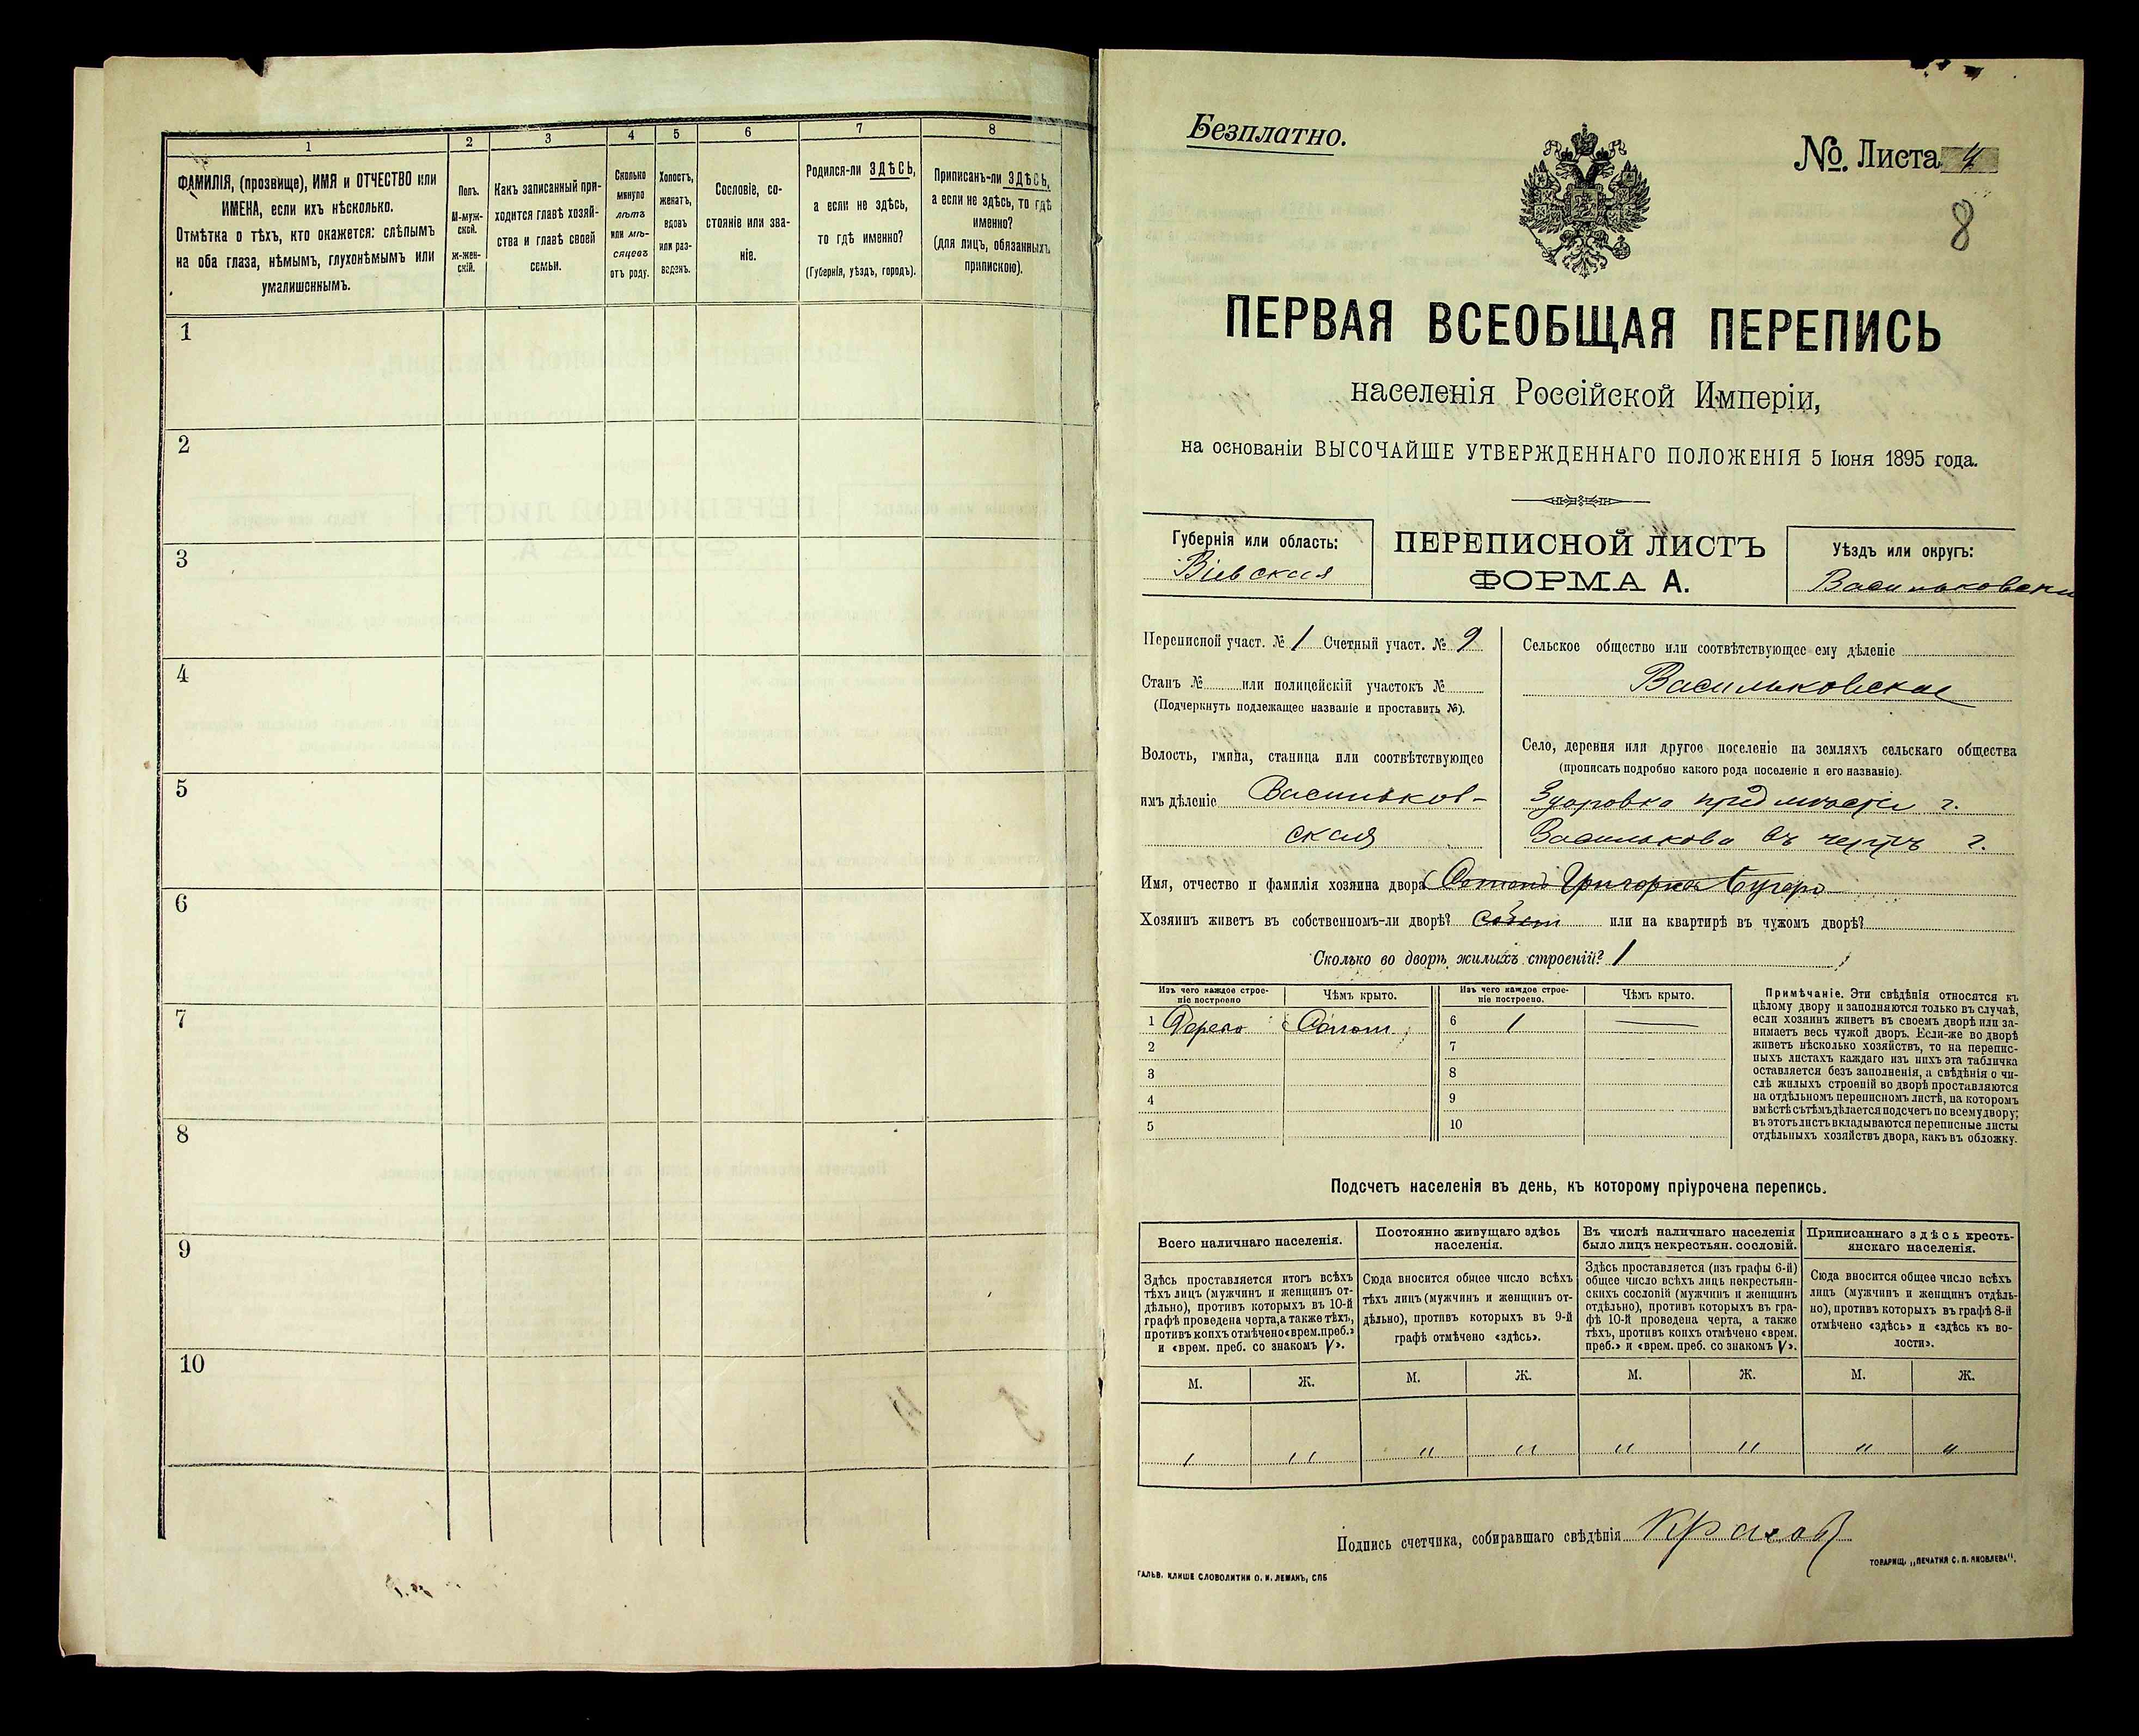 1
2
3
4
5
6
7
8
ФАМИЛІЯ, (прозвище), ИМЯ и ОТЧЕСТВО или
ИМЕНА, если ихъ нѣсколько.
Отмѣтка о тѣхъ, кто окажется: слѣпымъ
на оба глаза, нѣмымъ, глухонѣмымъ или
умалишеннымъ.
Полъ.
М-муж-
ской.
Ж-жен-
скій.
Какъ записанный при-
ходится главѣ хозяй-
ства и главѣ своей
семьи.
Сколько
минуло
лѣтъ
или мѣ-
сяцевъ
отъ роду.
Холостъ,
женатъ,
вдовъ
или раз-
веденъ.
Сословіе, со-
стояніе или зва-
ніе.
Родился-ли ЗДѢСЬ,
а если не здѣсь,
то гдѣ именно?
(Губернія, уѣздъ, городъ).
Приписанъ-ли ЗДѢСЬ,
а если не здѣсь, то гдѣ
именно?
(для лицъ, обязанныхъ
припискою).
1
2
3
4
5
6
7
8
9
10
Безплатно.
№. Листа 4
8
ПЕРВАЯ ВСЕОБЩАЯ ПЕРЕПИСЬ
населенія Россійской Имперіи,
на основаніи ВЫСОЧАЙШЕ УТВЕРЖДЕННАГО ПОЛОЖЕНІЯ 5 Іюня 1895 года.
Губернія или область:
Кіевская
ПЕРЕПИСНОЙ ЛИСТЪ
ФОРМА А.
Уѣздъ или округъ:
Васильковски
Переписной участ. № 1 Счетный участ. № 9
Станъ № или полицейскій участокъ №
(Подчеркнуть подлежащее названіе и проставить №).
Волость, гмина, станица или соотвѣтствующее
имъ дѣленіе Васильков-
ская
Сельское общество или соотвѣтствующее ему дѣленіе
Васильковское
Село, деревня или другое поселеніе на земляхъ сельскаго общества
(прописать подробно какого рода поселеніе и его названіе).
Здоровка предмѣстье г.
Василькова въ чертѣ г.
Имя, отчество и фамилія хозяина двора Григорьевъ
Хозяинъ живетъ въ собственномъ-ли дворѣ? или на квартирѣ въ чужомъ дворѣ?
Сколько во дворѣ жилыхъ строеній? 1
Изъ чего каждое строе-
ніе построено
Чѣмъ крыто.
Изъ чего каждое строе-
ніе построено.
Чѣмъ крыто.
1 Дерево Солом
6
2
7
3
8
4
9
5
10
Примѣчаніе. Эти свѣдѣнія относятся къ
цѣлому двору и заполняются только въ случаѣ,
если хозяинъ живетъ въ своемъ дворѣ или за-
нимаетъ весь чужой дворъ. Если-же во дворѣ
живетъ нѣсколько хозяйствъ, то на перепис-
ныхъ листахъ каждаго изъ нихъ эта табличка
оставляется безъ заполненія, а свѣдѣнія о чи-
слѣ жилыхъ строеній во дворѣ проставляются
на отдѣльномъ переписномъ листѣ, на которомъ
вмѣстѣ съ тѣмъ дѣлается подсчетъ по всему двору;
въ этотъ листъ вкладываются переписные листы
отдѣльныхъ хозяйствъ двора, какъ въ обложку.
Подсчетъ населенія въ день, къ которому пріурочена перепись.
Всего наличнаго населенія.
Постоянно живущаго здѣсь
населенія.
Въ числѣ наличнаго населенія
было лицъ некрестьян. сословій.
Приписаннаго здѣсь кресть-
янскаго населенія.
Здѣсь проставляется итогъ всѣхъ
тѣхъ лицъ (мужчинъ и женщинъ от-
дѣльно), противъ которыхъ въ 10-й
графѣ проведена черта, а также тѣхъ,
противъ коихъ отмѣчено «врем. преб.»
и «врем. преб. со знакомъ V».
Сюда вносится общее число всѣхъ
тѣхъ лицъ (мужчинъ и женщинъ от-
дѣльно), противъ которыхъ въ 9-й
графѣ отмѣчено «здѣсь».
Здѣсь проставляется (изъ графы 6-й)
общее число всѣхъ лицъ некрестьян-
скихъ сословій (мужчинъ и женщинъ
отдѣльно), противъ которыхъ въ гра-
фѣ 10-й проведена черта, а также
тѣхъ, противъ коихъ отмѣчено «врем.
преб.» и «врем. преб. со знакомъ V».
Сюда вносится общее число всѣхъ
лицъ (мужчинъ и женщинъ отдѣль-
но), противъ которыхъ въ графѣ 8-й
отмѣчено «здѣсь» и «здѣсь къ во-
лости».
М.
Ж.
М.
Ж.
М.
Ж.
М.
Ж.
" " " " " " "
Подпись счетчика, собиравшаго свѣдѣнія
ГАЛЬВ. КЛИШЕ СЛОВОЛИТНИ О. И. ЛЕМАНЪ, СПБ
ТОВАРИЩ. „ПЕЧАТНЯ С. П. ЯКОВЛЕВА".